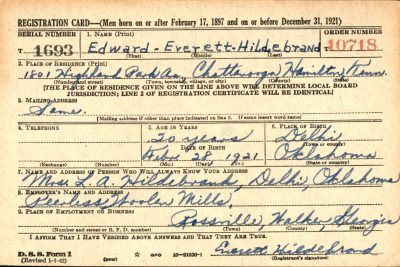 REGISTRATION CARD—(Men born on or after February 17, 1897 and on or before December 31, 1921)
SERIAL NUMBER 1. NAME (Print) ORDER NUMBER
T 1693 Edward - Everett - Hildebrand 10718
(First) (Middle) (Last)
2. PLACE OF RESIDENCE (Print)
1801 Highland Park Av, Chattanooga Hamilton Tenn.
(Number and street) (Town, township, village, or city) (County) (State)
[THE PLACE OF RESIDENCE GIVEN ON THE LINE ABOVE WILL DETERMINE LOCAL BOARD
JURISDICTION; LINE 2 OF REGISTRATION CERTIFICATE WILL BE IDENTICAL]
3. MAILING ADDRESS
Same.
[Mailing address if other than place indicated on line 2. If same insert word same]
4. TELEPHONE 5. AGE IN YEARS 6. PLACE OF BIRTH
20 years Delhi
DATE OF BIRTH (Town or county)
28 1921 Oklahoma
(Exchange) (Number) (Mo.) (Day) (Yr.) (State or country)
7. NAME AND ADDRESS OF PERSON WHO WILL ALWAYS KNOW YOUR ADDRESS
Mrs. L. A. Hildebrand, Delhi, Oklahoma
8. EMPLOYER'S NAME AND ADDRESS
Peerless Woolen Mills,
9. PLACE OF EMPLOYMENT OR BUSINESS
Rossville, Walker, Georgia
(Number and street or R. F. D. number) (Town) (County) (State)
I AFFIRM THAT I HAVE VERIFIED ABOVE ANSWERS AND THAT THEY ARE TRUE.
D. S. S. Form 1 Everett Hildebrand
(Revised 1-1-42) (over) GPO 16-21630-1 (Registrant's signature)